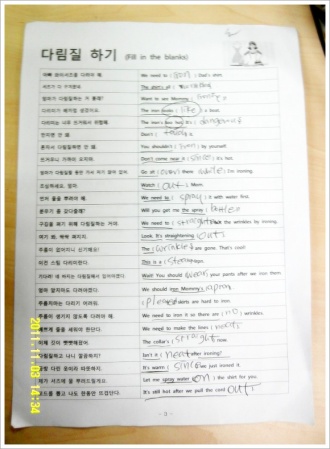 다림질 하기 (Fill in the blanks)
아빠 와이셔츠를 다려야 해. We need to (iron) dad's shirt.
셔츠가 다 구겨졌네. The shirt's all wrinkled
엄마가 다림질하는 거 볼래? Want to see Mommy ironing
The iron looks (like) a boat.
The iron's too hot. It's (dangerous
만지면 안 돼. Don't touch
혼자서 다림질하면 안 돼. You shouldn't iron by yourself.
뜨거우니 가까이 오지마. Don't come near it since it's hot.
Go sit (over) there while I'm ironing.
조심하세요, 엄마. Watch (out), Mom.
먼저 물을 뿌려야 해. We need to (spray) it with water first.
Will you get me the spray bottle
구김을 펴기 위해 다림질하는 거야. We need to straighten out the wrinkles by ironing.
여기 봐. 쫙쫙 펴지지. Look. It's straightening (out).
주름이 없어지니 신기해요! The (wrinkles) are gone. That's cool!
이건 스팀 다리미란다. This is a (steam) iron.
Wait! You should wear your pants after we iron them.
엄마 앞치마도 다려야겠다. We should iron Mommy's apron
주름치마는 다리기 어려워. (pleated) skirts are hard to iron.
주름이 생기지 않도록 다려야 해. We need to iron it so there are (no) wrinkles.
We need to make the lines neat
The collar's (straight) now.
다림질하고 나니 깔끔하지? Isn't it (neat) after ironing?
It's warm (since) we just ironed it.
제가 셔츠에 물 뿌려드릴게요. Let me spray water (on) the shirt for you.
It's still hot after we pull the cord (out).
- 3 -
2011.11.03 14:34